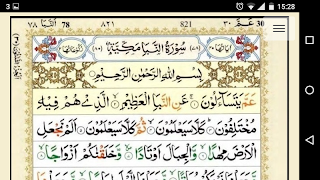 3 15:28
النبأ ٧٨ 78 ٨٢١ 821 عم ٣٠ 30
سُورَةُ النَّبَإِ مَكِّيَّةٌ
بِسْمِ اللهِ الرَّحْمٰنِ الرَّحِيْمِ
عَمَّ يَتَسَآءَلُوْنَ ۞ عَنِ النَّبَاِ الْعَظِيْمِ ۞ الَّذِيْ هُمْ فِيْهِ
مُخْتَلِفُوْنَ ۞ كَلَّا سَيَعْلَمُوْنَ ۞ ثُمَّ كَلَّا سَيَعْلَمُوْنَ ۞ اَلَمْ نَجْعَلِ
الْاَرْضَ مِهٰدًا ۞ وَّالْجِبَالَ اَوْتَادًا ۞ وَّخَلَقْنٰكُمْ اَزْوَاجًا ۞